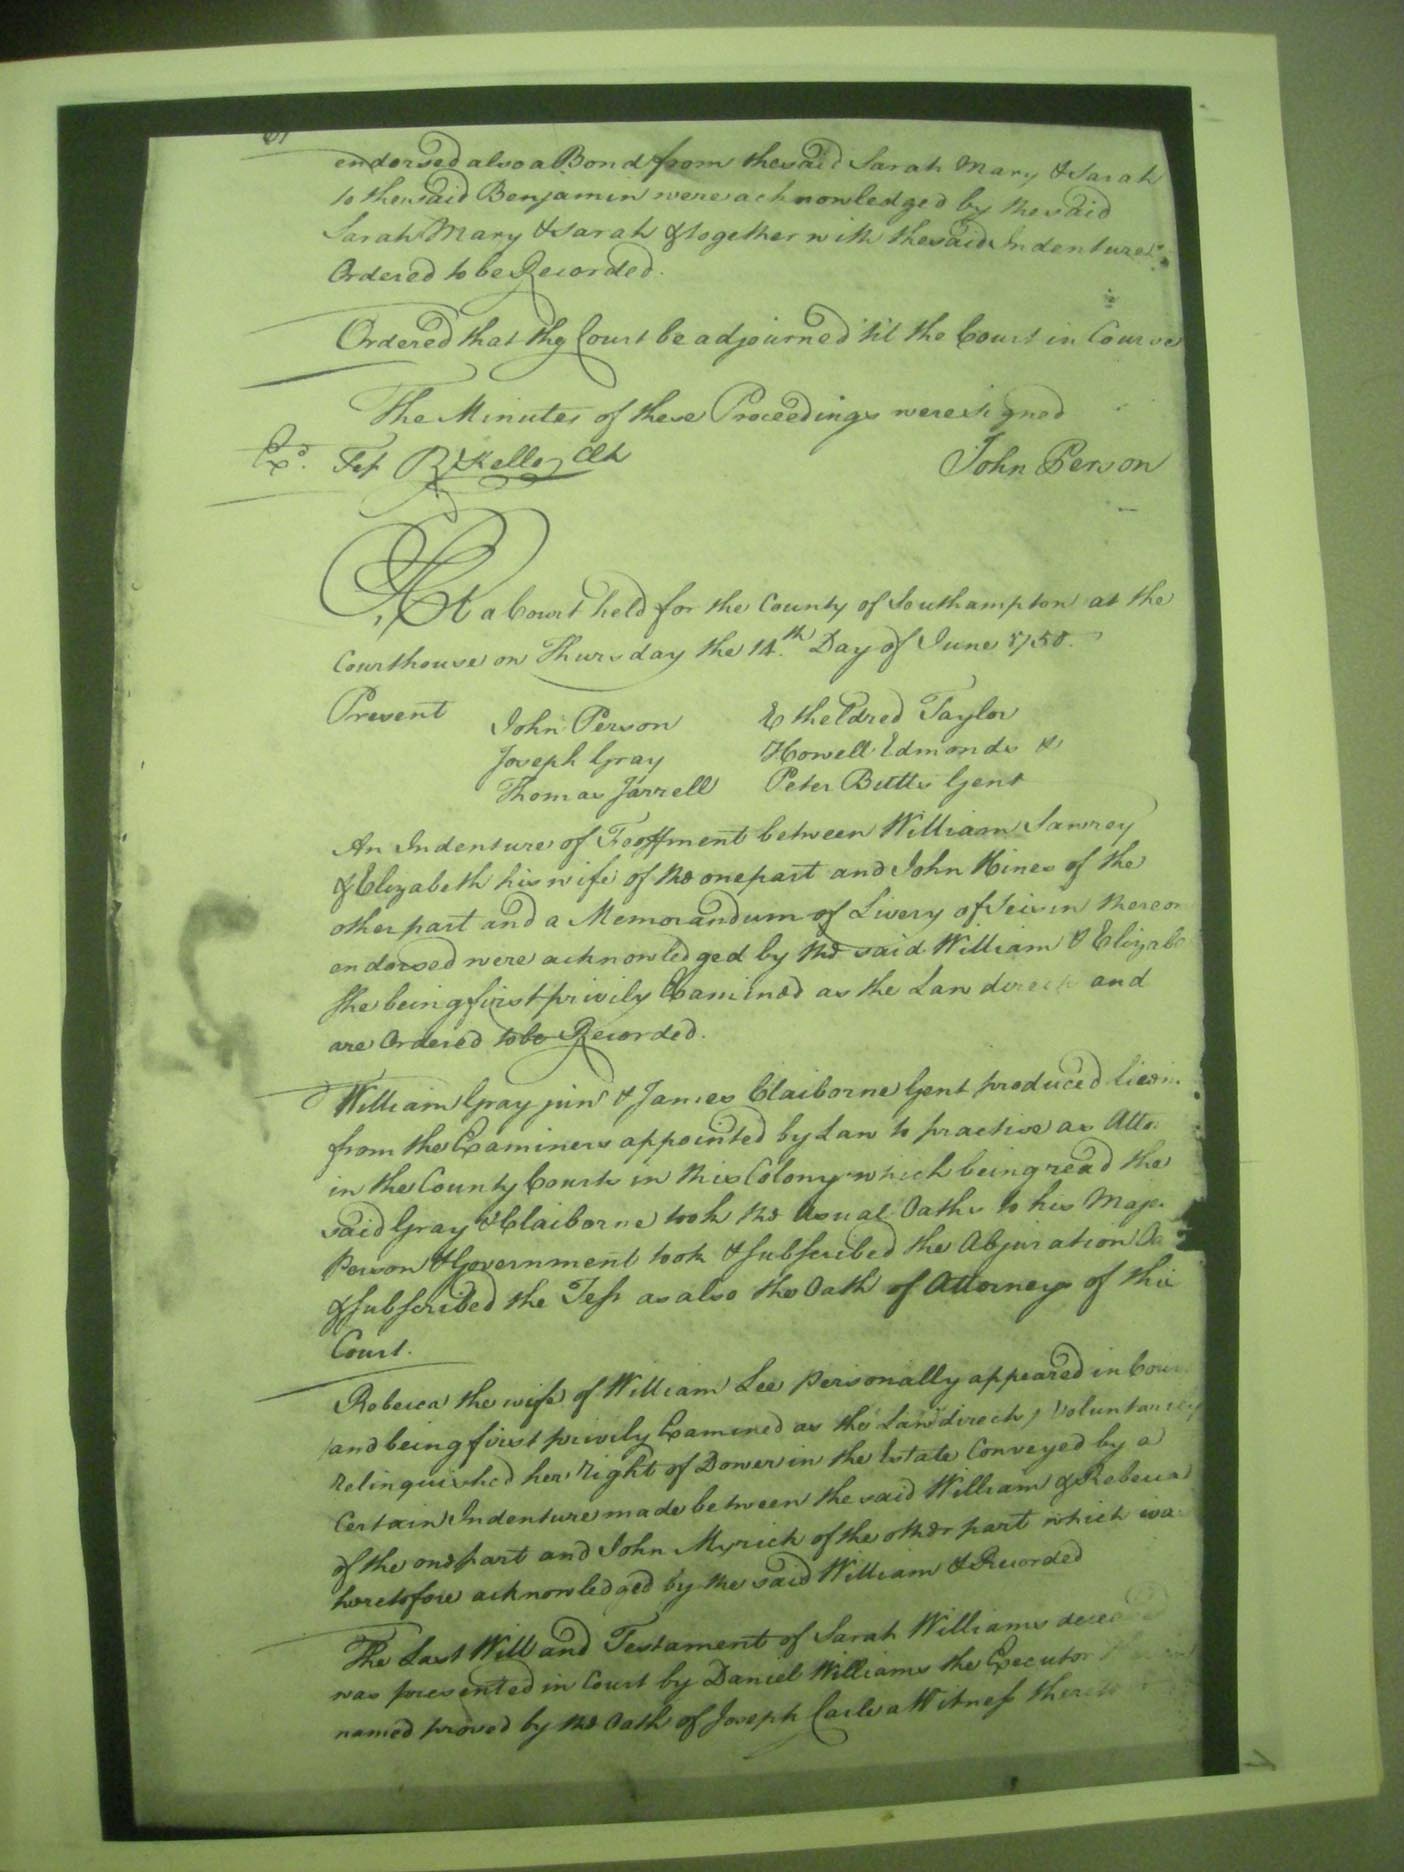 endorsed also a Bond from the said Sarah Mary & Sarah
to the said Benjamin were acknowledged by the said
Sarah Mary & Sarah & together with the said Indenture
Ordered to be Recorded.
Ordered that the Court be adjourned 'til the Court in Course
The Minutes of these Proceedings were signed
Exd. Test R Kello Clk John Person
At a Court held for the County of Southampton at the
Courthouse on Thursday the 14.th Day of June 1750.
Present John Person Etheldred Taylor
Joseph Gray Howell Edmonds &
Thomas Jarrell Peter Butts Gent
An Indenture of Feoffment between William Sawrey
& Elizabeth his wife of the one part and John Hines of the
other part and a Memorandum of Livery of Seisin thereon
endorsed were acknowledged by the said William & Elizabe
She being first privily Examined as the Law directs and
are Ordered to be Recorded.
William Gray junr & James Claiborne Gent produced
from the Examiners appointed by Law to practise as Atto
in the County Courts in this Colony which being read the
said Gray & Claiborne took the usual Oaths to his Maje
Person & Government took & subscribed the Abjuration Oa
& subscribed the Test as also the Oath of Attorneys of this
Court.
Rebecca the wife of William Lee personally appeared in Cour
and being first privily Examined as the Law directs, voluntarily
Relinquished her right of Dower in the Estate Conveyed by a
Certain Indenture made between the said William & Rebecca
of the one part and John Myrick of the other part which wa
heretofore acknowledged by the said William & Recorded
The Last Will and Testament of Sarah Williams
was presented in Court by Daniel Williams the Executor
named proved by the Oath of Joseph Carle a Witness thereto